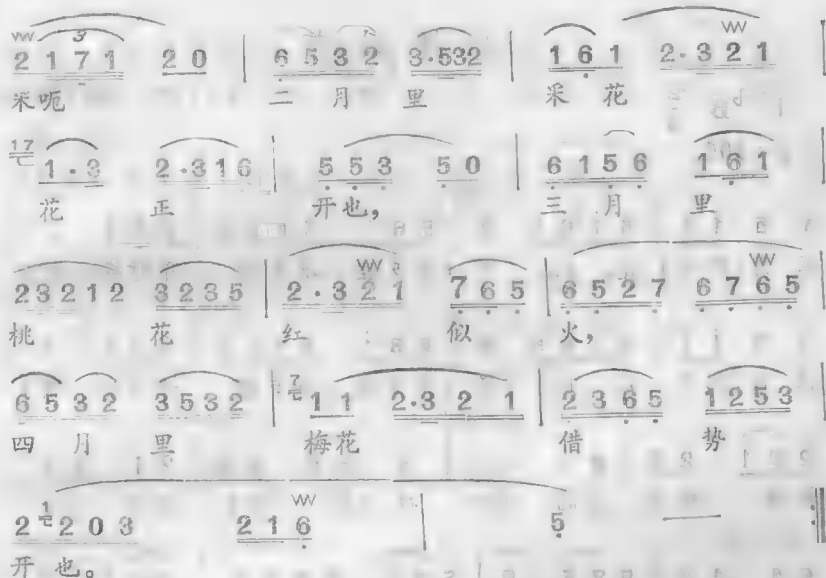 2 1 7 1 2 0 | 6 5 3 2 3·532 | 1 6 1 2·3 2 1
采呃 二 月 里 采 花
1·3 2·316 | 5 5 3 5 0 | 6 1 5 6 1 6 1
花 正 开也, 三 月 里
2 3 2 1 2 3 2 3 5 | 2·3 2 1 7 6 5 | 6 5 2 7 6 7 6 5
桃 花 红 似 火,
6 5 3 2 3 5 3 2 | 1 1 2·3 2 1 | 2 3 6 5 1 2 5 3
四 月 里 梅花 借 势
2 2 0 3 2 1 6 | 5 —
开 也。